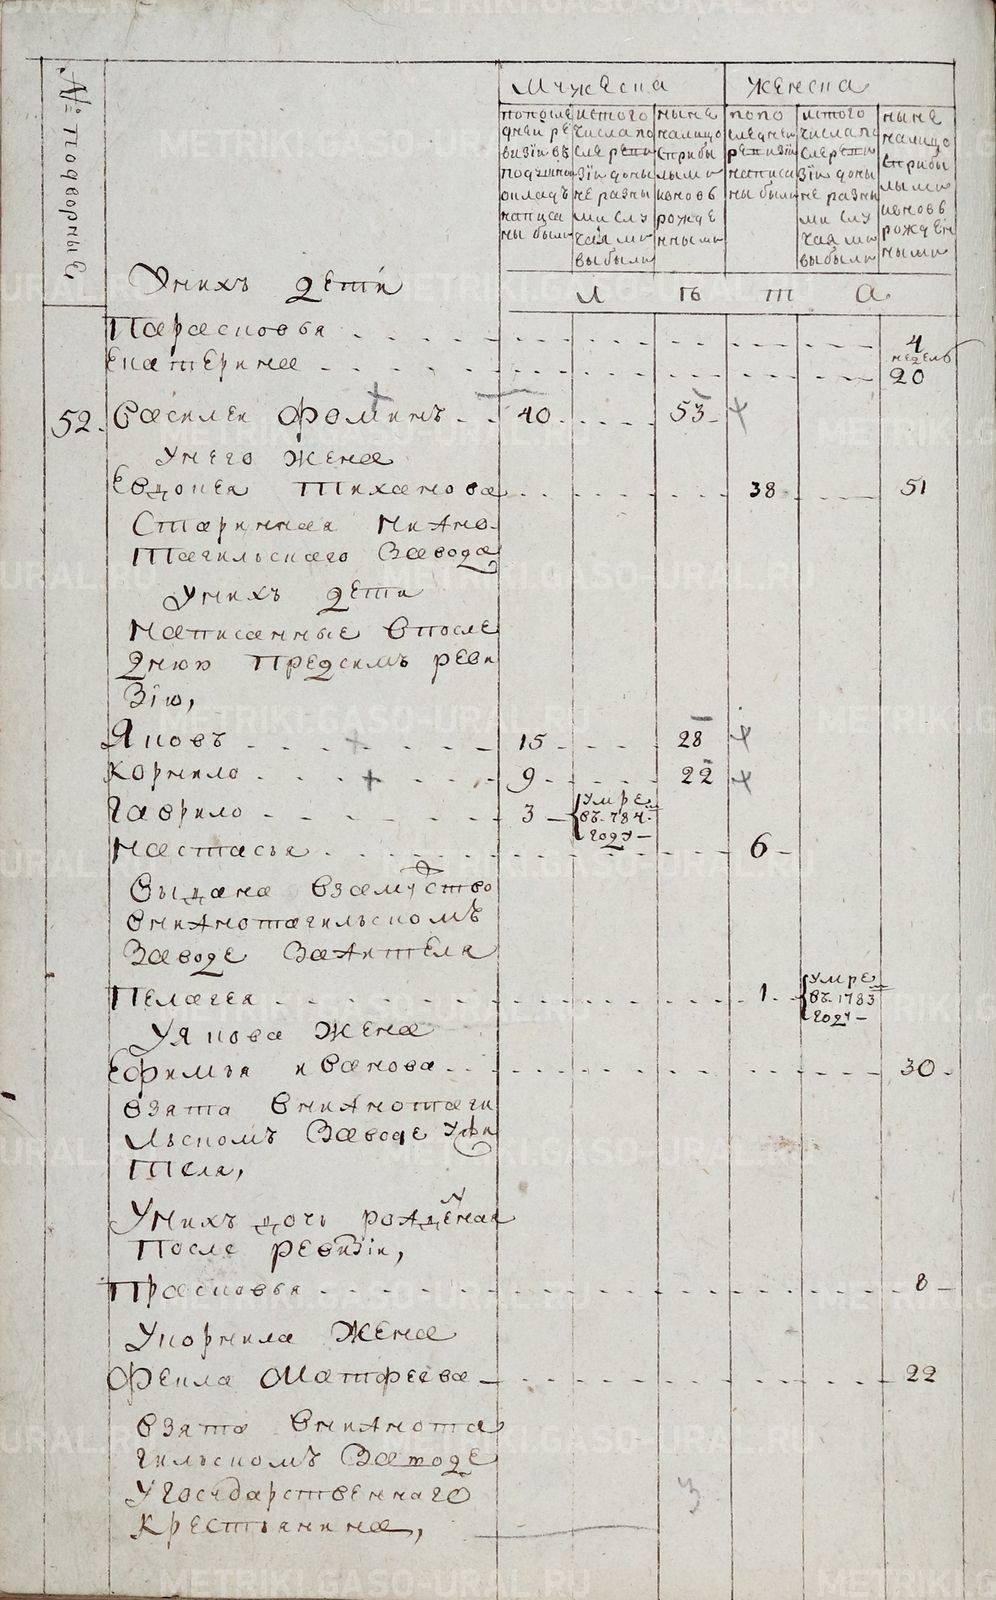 № подворные
Мужеска
Женска
по последней ревизiи въ подушной окладъ написаны были
ис того числа после ревизiи до ныне разными случаями выбыли
ныне на лицо с прибылыми и вновь рожденными
по последней ревизiи написаны были
ис того числа после ревизiи до ныне разными случаями выбыли
ныне на лицо с прибылыми и вновь рожденными
Лѣта
У нихъ дети
Парасковья 4
недель
Екатерина 20
52. Василеи Фоминъ 40 53
У него жена
Евдокея Тиханова 38 51
Старинная нижно-
тагильскаго завода
У нихъ дети
Написанные в после
днюю предсимъ реви
зiю,
Яковъ 15 28
Корнило 9 22
Гаврило 3 умре
въ 784
году
Настасья 6
выдана взамуство
в нижнотагильскомъ
заводе за жителя
Пелагея 1 умре
въ 1783
году
У Якова жена
Ефимья Иванова 30
взята в нижнотаги
льскомъ заводе у жи
теля,
У нихъ дочь рожденная
после ревизiи,
Прасковья 8
У Корнила жена
Фекла Матфеева 22
взята в нижнота
гильскомъ заводе
у государственнаго
крестьянина,
3
METRIKI.GASO-URAL.RU